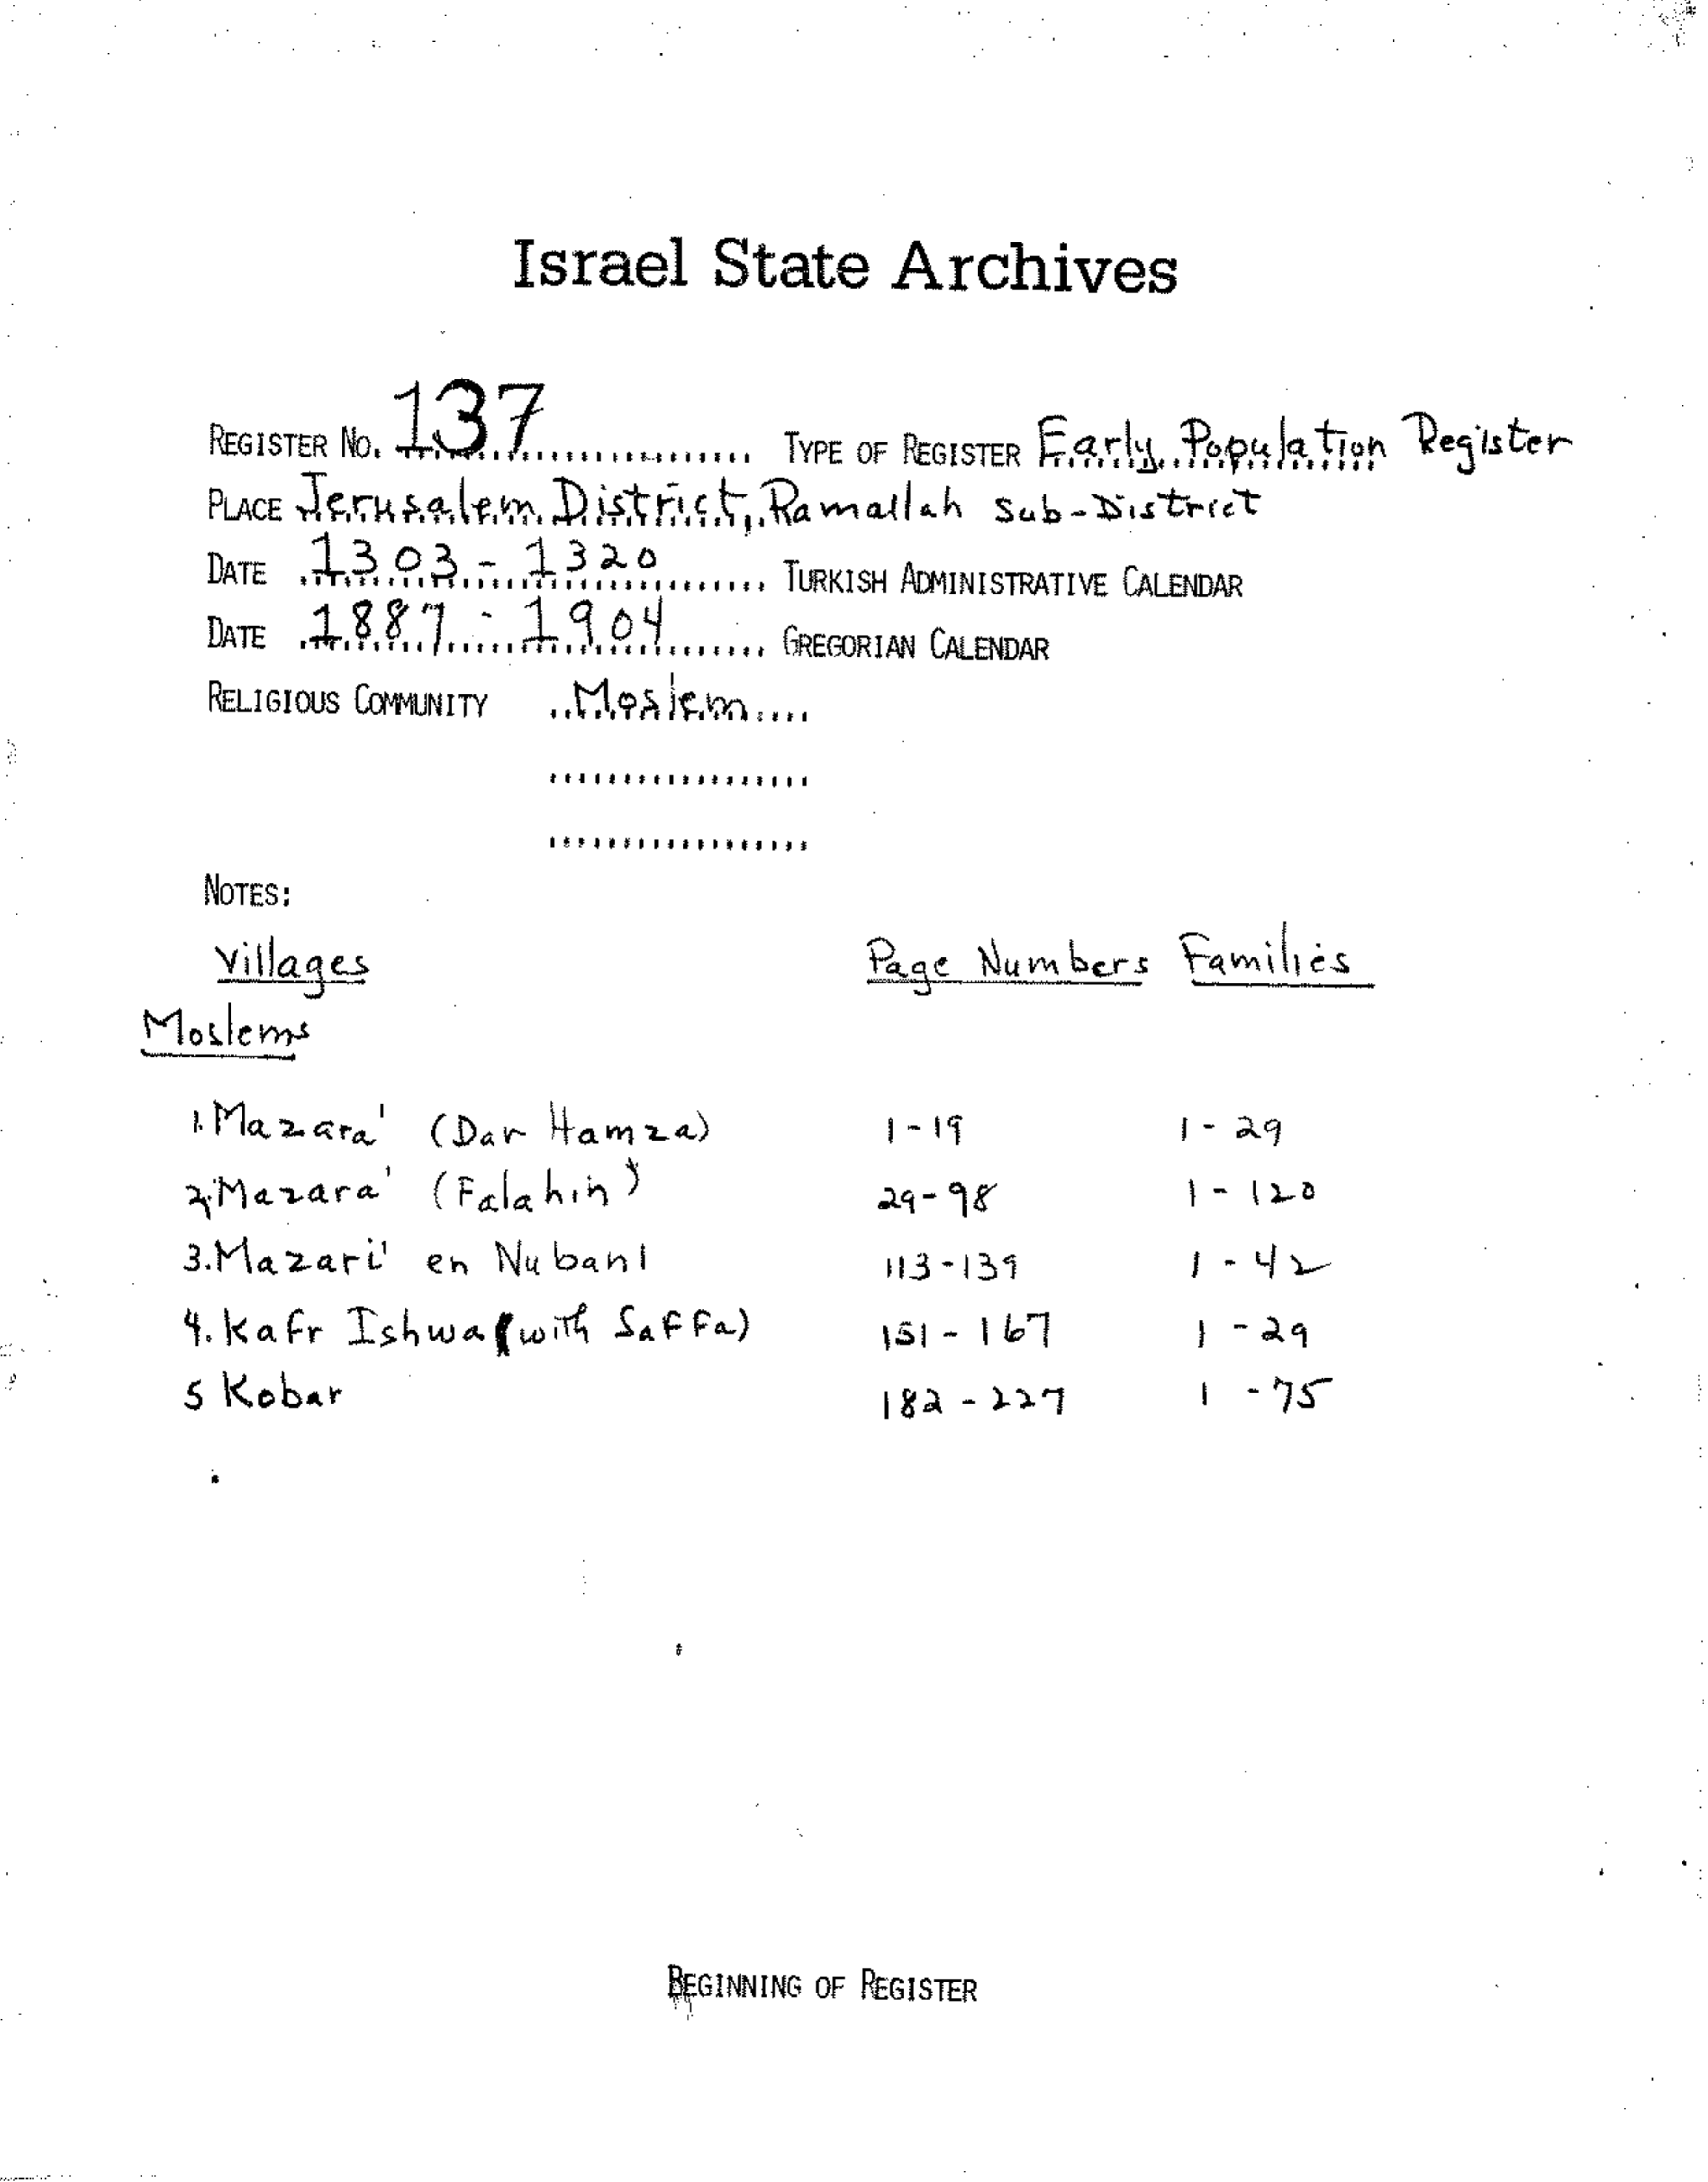 Israel State Archives
REGISTER NO. 137 TYPE OF REGISTER Early Population Register
PLACE Jerusalem District, Ramallah Sub-District
DATE 1303 - 1320 TURKISH ADMINISTRATIVE CALENDAR
DATE 1887 - 1904 GREGORIAN CALENDAR
RELIGIOUS COMMUNITY Moslem
NOTES:
Villages Page Numbers Families
Moslems
1. Mazara' (Dar Hamza) 1-19 1-29
2. Mazara' (Falahin) 29-98 1-120
3. Mazari' en Nubani 113-139 1-42
4. Kafr Ishwa (with Saffa) 151-167 1-29
5 Kobar 182-227 1-75
BEGINNING OF REGISTER